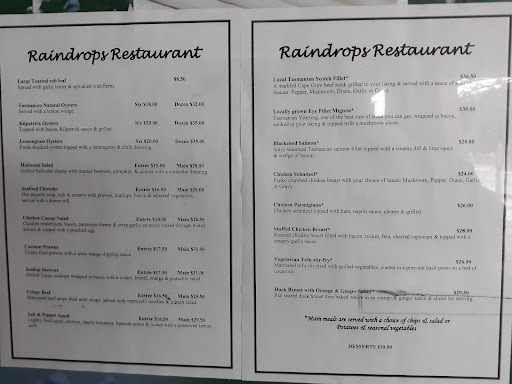 Raindrops Restaurant
Large Toasted cob loaf $8.50
Spread with garlic butter & sprinkled with herbs
Tasmanian Natural Oysters Six $18.00 Dozen $32.00
Served with a lemon wedge
Kilpatrick Oysters Six $20.00 Dozen $35.00
Topped with bacon, Kilpatrick sauce & grilled
Lemongrass Oysters Six $20.00 Dozen $35.00
Fresh shucked oysters topped with a lemongrass & chilli dressing
Halloumi Salad Entrée $18.00 Main $28.00
Grilled halloumi cheese with roasted beetroot, pumpkin, & quinoa with a coriander dressing
Seafood Chowder Entrée $16.50 Main $29.00
Our popular soup, rich & creamy with prawns, scallops, bacon & selected vegetables,
served with a dinner roll
Chicken Caesar Salad Entrée $16.00 Main $28.50
Chicken tenderloins, bacon, parmesan cheese & crisp garlic croutons tossed through mixed
lettuce & topped with a poached egg
Coconut Prawns Entrée $17.50 Main $31.00
Crispy fried prawns with a spicy mango dipping sauce
Scallop Skewers Entrée $17.50 Main $31.00
Grilled Tassie scallops wrapped in bacon with a rocket, & salad
Crispy Beef Entrée $16.50 Main $29.50
Marinated beef strips fried until crispy, served with vermicelli noodles & a salad
Salt & Pepper Squid Entrée $16.50 Main $29.50
Lightly fried squid, cherry tomatoes, Spanish onion & rocket with a preserved lemon
Raindrops Restaurant
Local Tasmanian Scotch Fillet* $36.50
A marbled Cape Grim beef steak grilled to your liking & served with a sauce of
Sauces: Pepper, Mushroom, Diane, Garlic or Gravy.
Locally grown Eye Fillet Mignon* $39.00
Tasmanian Yearling, one of the best cuts of you can get, wrapped in bacon,
cooked to your liking & topped with a mushroom sauce.
Blackened Salmon* $29.00
Spicy seasoned Tasmanian salmon fillet topped with a creamy dill & lime sauce
& wedge of lemon.
Chicken Schnitzel* $24.00
Panko crumbed chicken breast with your choice of sauce: Mushroom, Pepper, Diane, Garlic
or Gravy
Chicken Parmigiana* $26.00
Chicken schnitzel topped with ham, napoli sauce, cheese & grilled.
Stuffed Chicken Breast* $28.00
Roasted chicken breast filled with bacon, rocket, feta, charred capsicum & topped with a
creamy garlic sauce
Vegetarian Tofu stir-fry* $26.00
Marinated tofu stir-fried with grilled vegetables, coated in a pine-nut basil pesto on a bed of
couscous
Duck Breast with Orange & Ginger $29.50
Pan seared duck breast then baked in orange & ginger sauce & sliced for serving.
*Main meals are served with a choice of chips & salad or
Potatoes & seasonal vegetables
DESSERTS $10.50